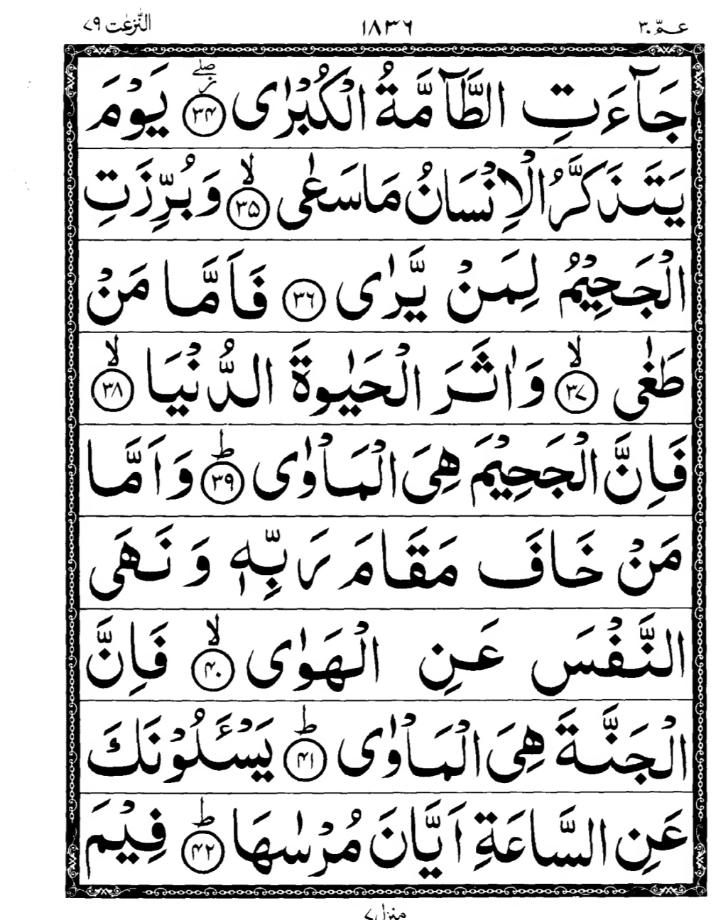 عـمّ ٣٠ ١٨٣٦ النّٰزعٰت ٧٩
جَآءَتِ الطَّآمَّةُ الْكُبْرٰى ﴿۳۴﴾ۖز يَوْمَ
يَتَذَكَّرُ الْاِنْسَانُ مَا سَعٰى ﴿۳۵﴾ۙ وَبُرِّزَتِ
الْجَحِيْمُ لِمَنْ يَّرٰى ﴿۳۶﴾ فَاَمَّا مَنْ
طَغٰى ﴿۳۷﴾ۙ وَاٰثَرَ الْحَيٰوةَ الدُّنْيَا ﴿۳۸﴾ۙ
فَاِنَّ الْجَحِيْمَ هِىَ الْمَاْوٰى ﴿۳۹﴾ؕ وَاَمَّا
مَنْ خَافَ مَقَامَ رَبِّهٖ وَ نَهَى
النَّفْسَ عَنِ الْهَوٰى ﴿۴۰﴾ۙ فَاِنَّ
الْجَنَّةَ هِىَ الْمَاْوٰى ﴿۴۱﴾ؕ يَسْـَٔلُوْنَكَ
عَنِ السَّاعَةِ اَيَّانَ مُرْسٰىهَا ﴿۴۲﴾ؕ فِيْمَ
منزل ٧